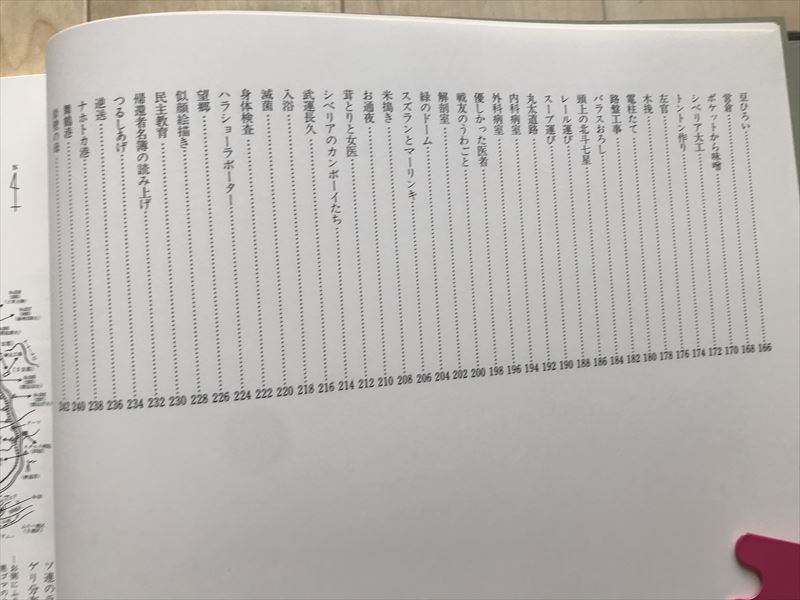 豆ひろい……166
営倉……168
ポケットから味噌……170
シベリア大工……172
トントン作り……174
左官……176
木挽……178
電柱たて……180
路盤工事……182
バラスおろし……184
頭上の北斗七星……186
レール運び……188
スープ運び……190
丸太道路……192
内科病室……194
外科病室……196
優しかった医者……198
戦友のうわごと……200
解剖室……202
緑のドーム……204
スズランとマーリンキ……206
米搗き……208
お通夜……210
茸とりと女医……212
シベリアのカンボーイたち……214
武運長久……216
入浴……218
滅菌……220
身体検査……222
ハラショーラボーター……224
望郷……226
似顔絵描き……228
民主教育……230
帰還者名簿の読み上げ……232
つるしあげ……234
逆送……236
ナホトカ港……238
舞鶴港……240
岸壁の母……242
N
ソ連の
ゲリ分